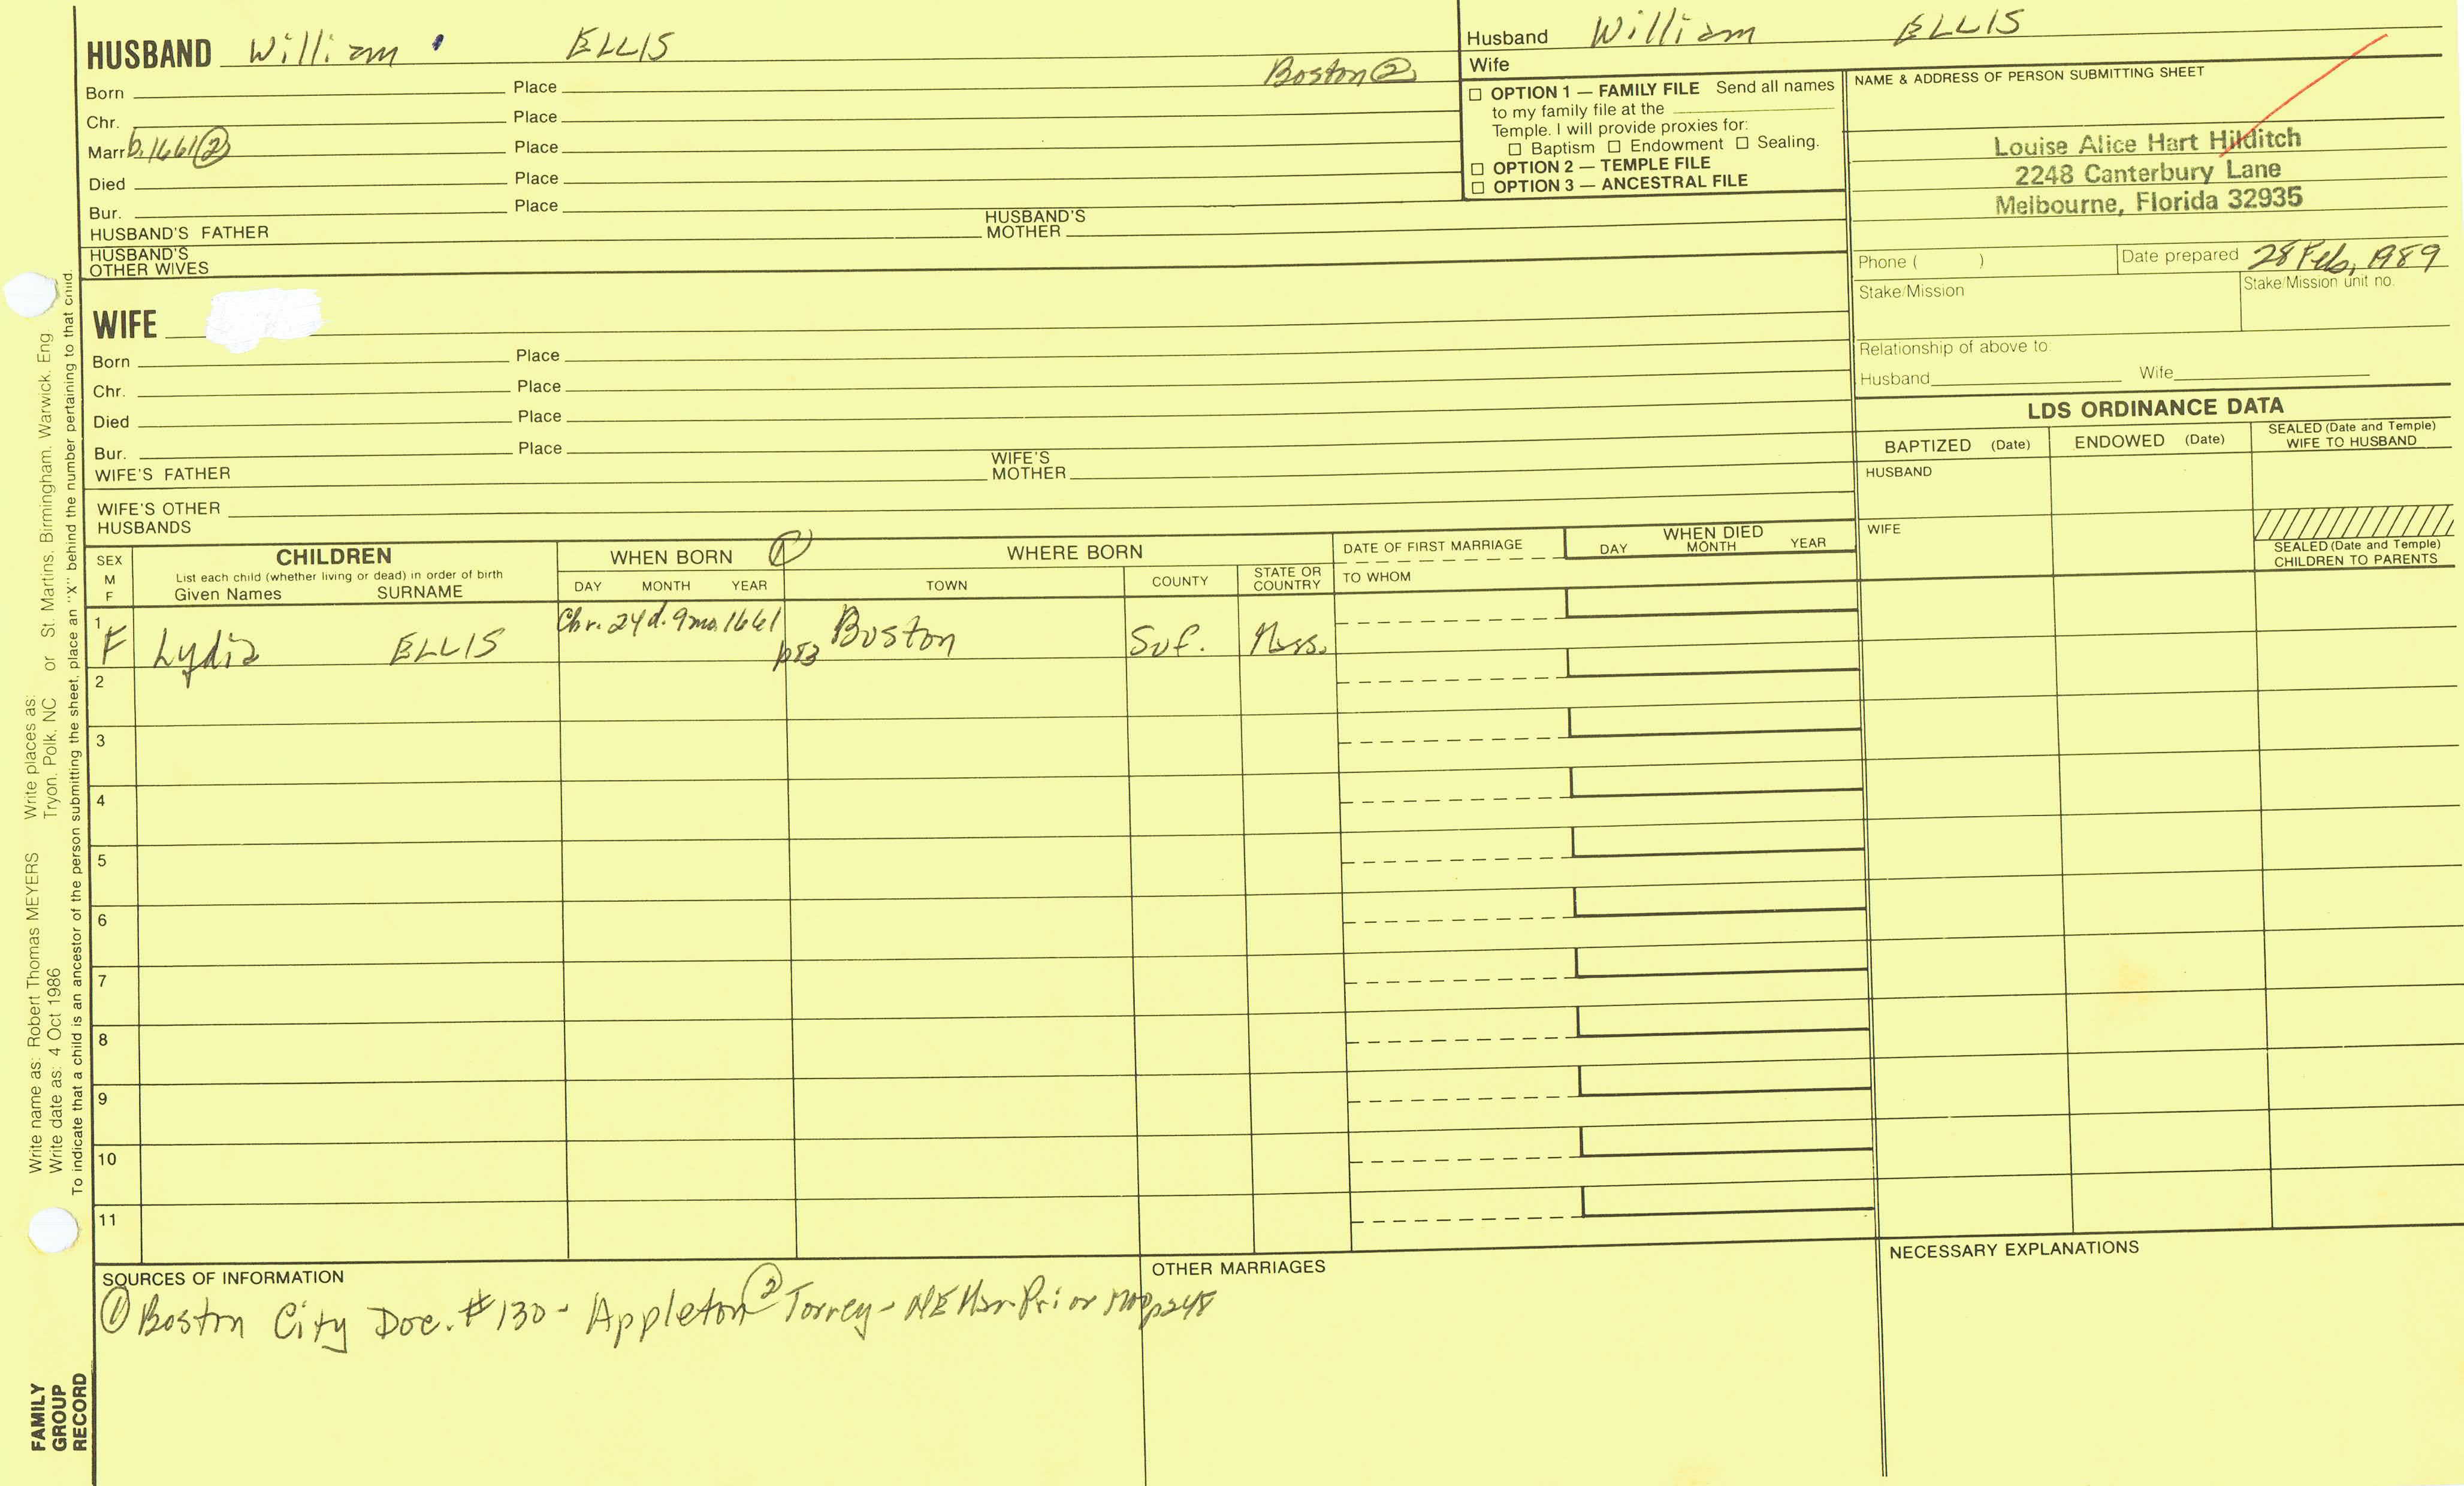 HUSBAND William ELLIS
Boston ②
Born Place
Chr. Place
Marr b. 1661 ② Place
Died Place
Bur. Place
HUSBAND'S FATHER HUSBAND'S MOTHER
HUSBAND'S OTHER WIVES
WIFE
Born Place
Chr. Place
Died Place
Bur. Place
WIFE'S FATHER WIFE'S MOTHER
WIFE'S OTHER HUSBANDS
Husband William ELLIS
Wife
☐ OPTION 1 — FAMILY FILE Send all names
to my family file at the
Temple. I will provide proxies for:
☐ Baptism ☐ Endowment ☐ Sealing.
☐ OPTION 2 — TEMPLE FILE
☐ OPTION 3 — ANCESTRAL FILE
NAME & ADDRESS OF PERSON SUBMITTING SHEET
Louise Alice Hart Hilditch
2248 Canterbury Lane
Melbourne, Florida 32935
Phone ( ) Date prepared 28 Feb, 1989
Stake/Mission Stake/Mission unit no.
Relationship of above to:
Husband Wife
LDS ORDINANCE DATA
BAPTIZED (Date) ENDOWED (Date) SEALED (Date and Temple) WIFE TO HUSBAND
HUSBAND
WIFE
SEALED (Date and Temple) CHILDREN TO PARENTS
SEX M F
CHILDREN
List each child (whether living or dead) in order of birth
Given Names SURNAME
WHEN BORN ①
DAY MONTH YEAR
WHERE BORN
TOWN COUNTY STATE OR COUNTRY
DATE OF FIRST MARRIAGE
TO WHOM
WHEN DIED
DAY MONTH YEAR
1 F Lydia ELLIS Chr. 24 d. 9 mo. 1661 p83 Boston Suf. Mass.
2
3
4
5
6
7
8
9
10
11
SOURCES OF INFORMATION
① Boston City Doc. #130 - Appleton ② Torrey - NE Mar Prior 1700 p248
OTHER MARRIAGES
NECESSARY EXPLANATIONS
Write name as: Robert Thomas MEYERS Write places as:
Write date as: 4 Oct 1986 Tryon, Polk, NC or St. Martins, Birmingham, Warwick, Eng
To indicate that a child is an ancestor of the person submitting the sheet, place an "X" behind the number pertaining to that child.
FAMILY
GROUP
RECORD